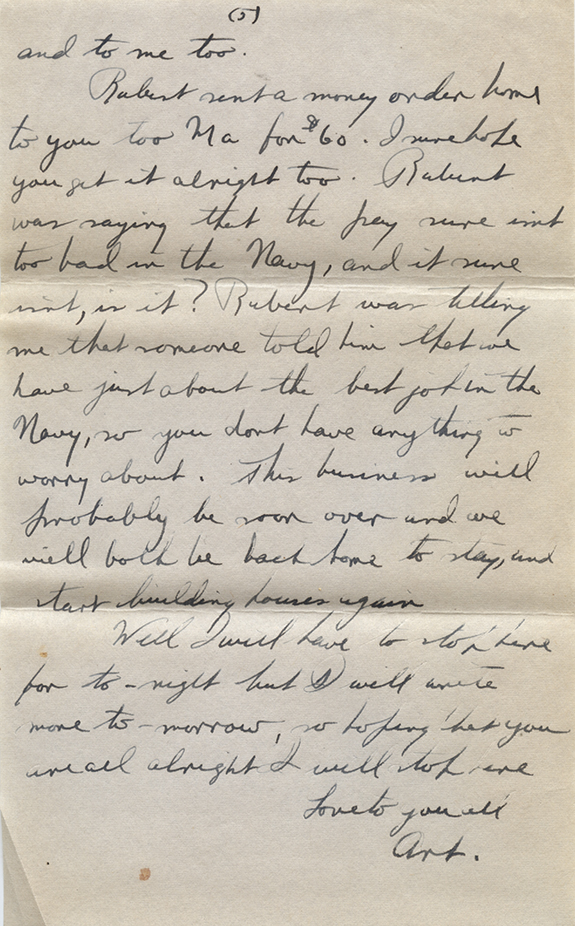 (5)
and to me too.
Rubert sent a money order home
to you too Ma for $60. I sure hope
you get it alright too. Rubert
was saying that the pay sure isnt
too bad in the Navy, and it sure
isnt, is it? Rubert was telling
me that someone told him that we
have just about the best job in the
Navy, so you dont have anything to
worry about. This business will
probably be soon over and we
will both be back home to stay, and
start building houses again
Well I will have to stop here
for to-night but I will write
more to-morrow, so hoping that you
are all alright I will stop here
Love to you all
Art.